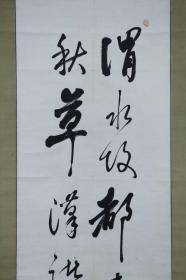 渭水故都
秋草漢